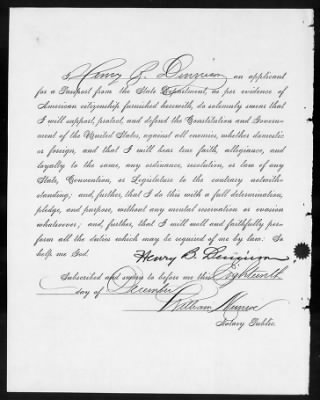 I Henry B. Dennison an applicant
for a Passport from the State Department, as per evidence of
American citizenship furnished herewith, do solemnly swear that
I will support, protect, and defend the Constitution and Govern-
ment of the United States, against all enemies, whether domestic
or foreign, and that I will bear true faith, allegiance, and
loyalty to the same, any ordinance, resolution, or law of any
State, Convention, or Legislature to the contrary notwith-
standing; and, further, that I do this with a full determination,
pledge, and purpose, without any mental reservation or evasion
whatsoever; and, further, that I will well and faithfully per-
form all the duties which may be required of me by law. So
help me God.
Henry B. Dennison
Subscribed and sworn to before me this Eighteenth
day of December
William Munroe
Notary Public.